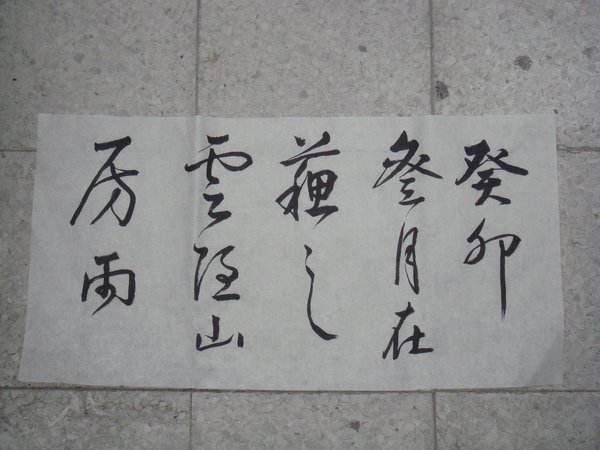 癸卯
月在
蘇之
雲隱山
房雨